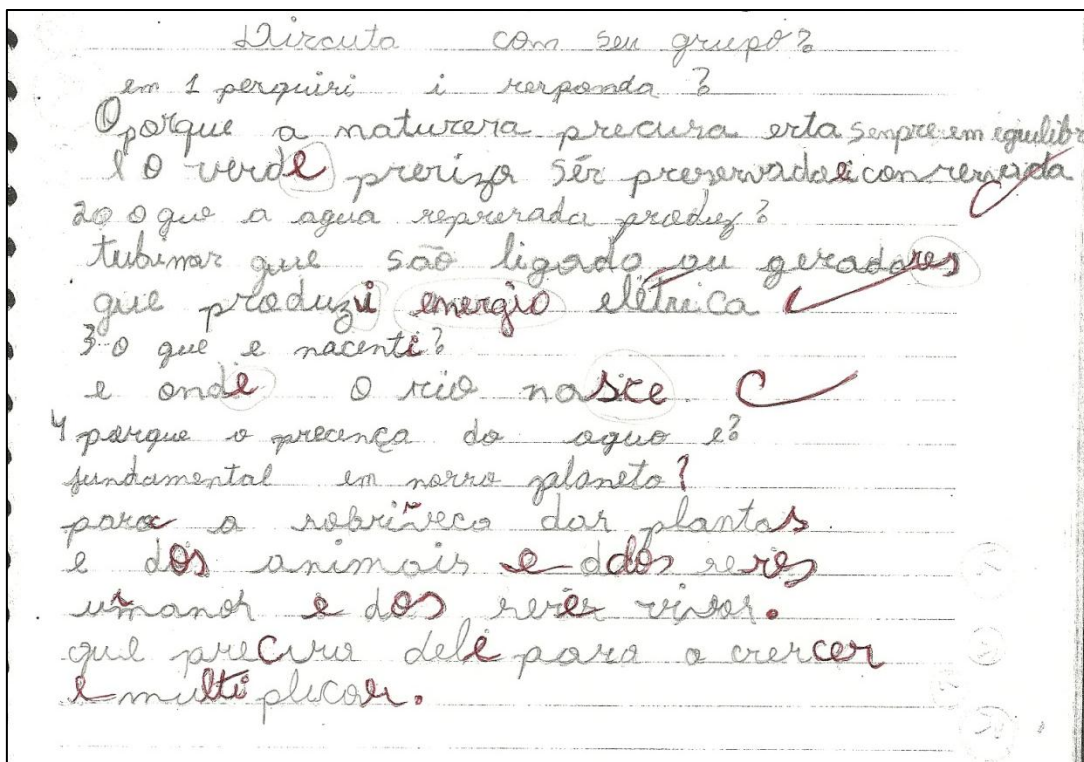 Dircuta com seu grupo?
em 1 perguiri i rerponda ?
O porque a naturera precura erta sempre em equilibr
1 O verde prerizo ser preservada e conrervada
2o o que a agua reprerada produz?
tubinar que são ligado ou geradores
que produzi energio elétrica
3 o que e nacenti?
e onde o rio nasce
4 porque o precença do aguo e?
fundamental em norro planeto?
para a robriveca dar plantas.
e dos animais e ddos seres
umanor e dos seres vivos.
que precira dele para o crercer
e multiplicar.